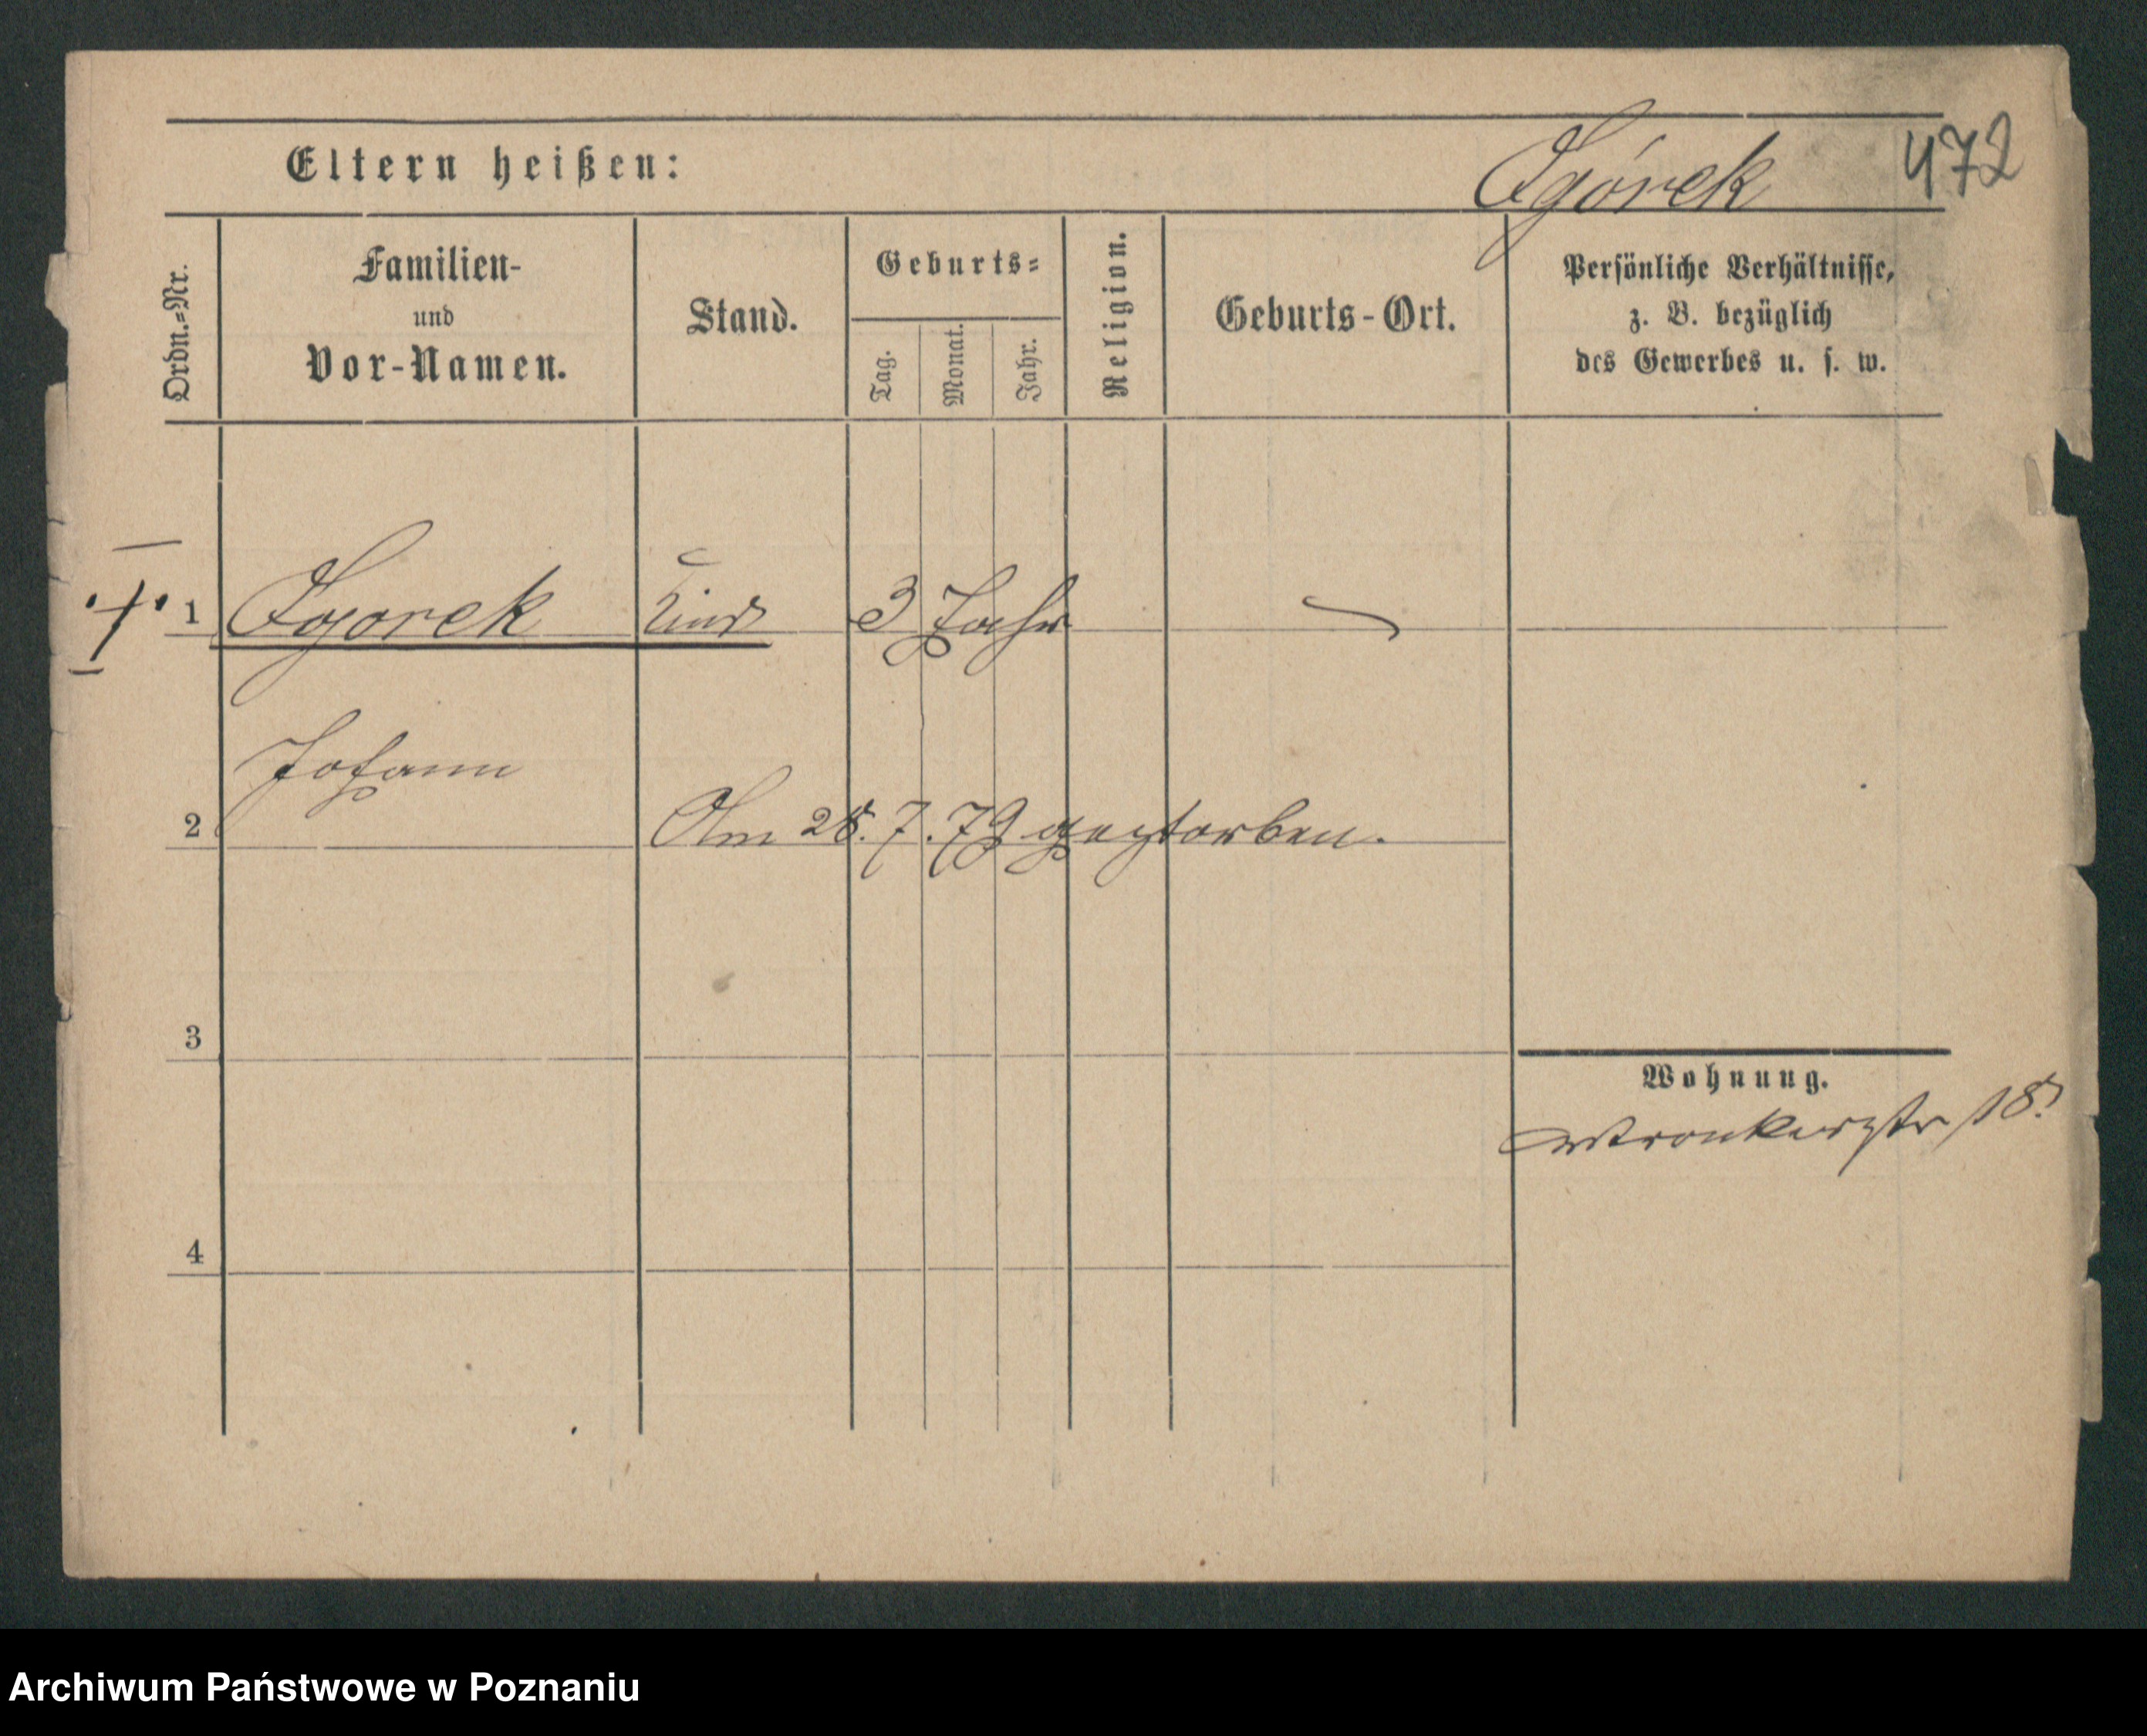 Eltern heißen:
Zgórek
472
Ordn.-Nr.
Familien-
und
Vor-Namen.
Stand.
Geburts-
Tag.
Monat.
Jahr.
Religion.
Geburts-Ort.
Persönliche Verhältnisse,
z. B. bezüglich
des Gewerbes u. s. w.
1 Zgorek Kind 3 Jahr
Johann
2 Am 28. 7. 79 gestorben.
3
Wohnung.
Wronkerstr 18.
4
Archiwum Państwowe w Poznaniu